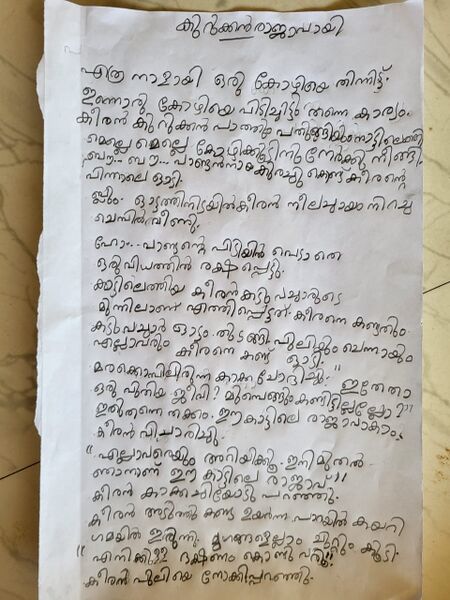 കുറുക്കൻ രാജാവായി
എത്ര നാളായി ഒരു കോഴിയെ തിന്നിട്ട്.
ഇന്നൊരു കോഴിയെ പിടിച്ചിട്ടു തന്നെ കാര്യം.
കീരൻ കുറുക്കൻ പാത്തും പതുങ്ങിയും നാട്ടിലെത്തി
മെല്ലെ മെല്ലെ കോഴിക്കൂട്ടിനു നേർക്കു നീങ്ങി.
ബൗ... ബൗ... പാണ്ടൻനായ കുരച്ചു കൊണ്ട് കീരൻ്റെ
പിന്നാലെ ഓടി.
പ്ലും. ഓട്ടത്തിനിടയിൽ കീരൻ നീലച്ചായം നിറച്ച
ചെമ്പിൽ വീണു.
ഹോ... പാണ്ടൻ്റെ പിടിയിൽ പെടാതെ
ഒരുവിധത്തിൽ രക്ഷപ്പെട്ടു.
കാട്ടിലെത്തിയ കീരൻ കടുവച്ചാരുടെ
മുന്നിലാണ് എത്തിപ്പെട്ടത്. കീരനെ കണ്ടതും
കടുവച്ചാർ ഓട്ടം തുടങ്ങി. പുലിയും ചെന്നായും
എല്ലാവരും കീരനെ കണ്ട് ഓടി.
മരക്കൊമ്പിലിരുന്ന കാക്ക ചോദിച്ചു. "ഇതേതാ
ഒരു പുതിയ ജീവി? മുമ്പെങ്ങും കണ്ടിട്ടില്ലല്ലോ?"
ഇതുതന്നെ തക്കം. ഈ കാട്ടിലെ രാജാവാകാം.
കീരൻ വിചാരിച്ചു.
"എല്ലാവരെയും അറിയിക്കൂ. ഇനിമുതൽ
ഞാനാണ് ഈ കാട്ടിലെ രാജാവ്."
കീരൻ കാക്കയോട് പറഞ്ഞു.
കീരൻ അടുത്തു കണ്ട ഉയർന്ന പാറയിൽ കയറി
ഗമയിൽ ഇരുന്നു. മൃഗങ്ങളെല്ലാം ചുറ്റും കൂടി.
"എനിക്കു ഭക്ഷണം കൊണ്ടു വരൂ."
കീരൻ പുലിയെ നോക്കിപ്പറഞ്ഞു.